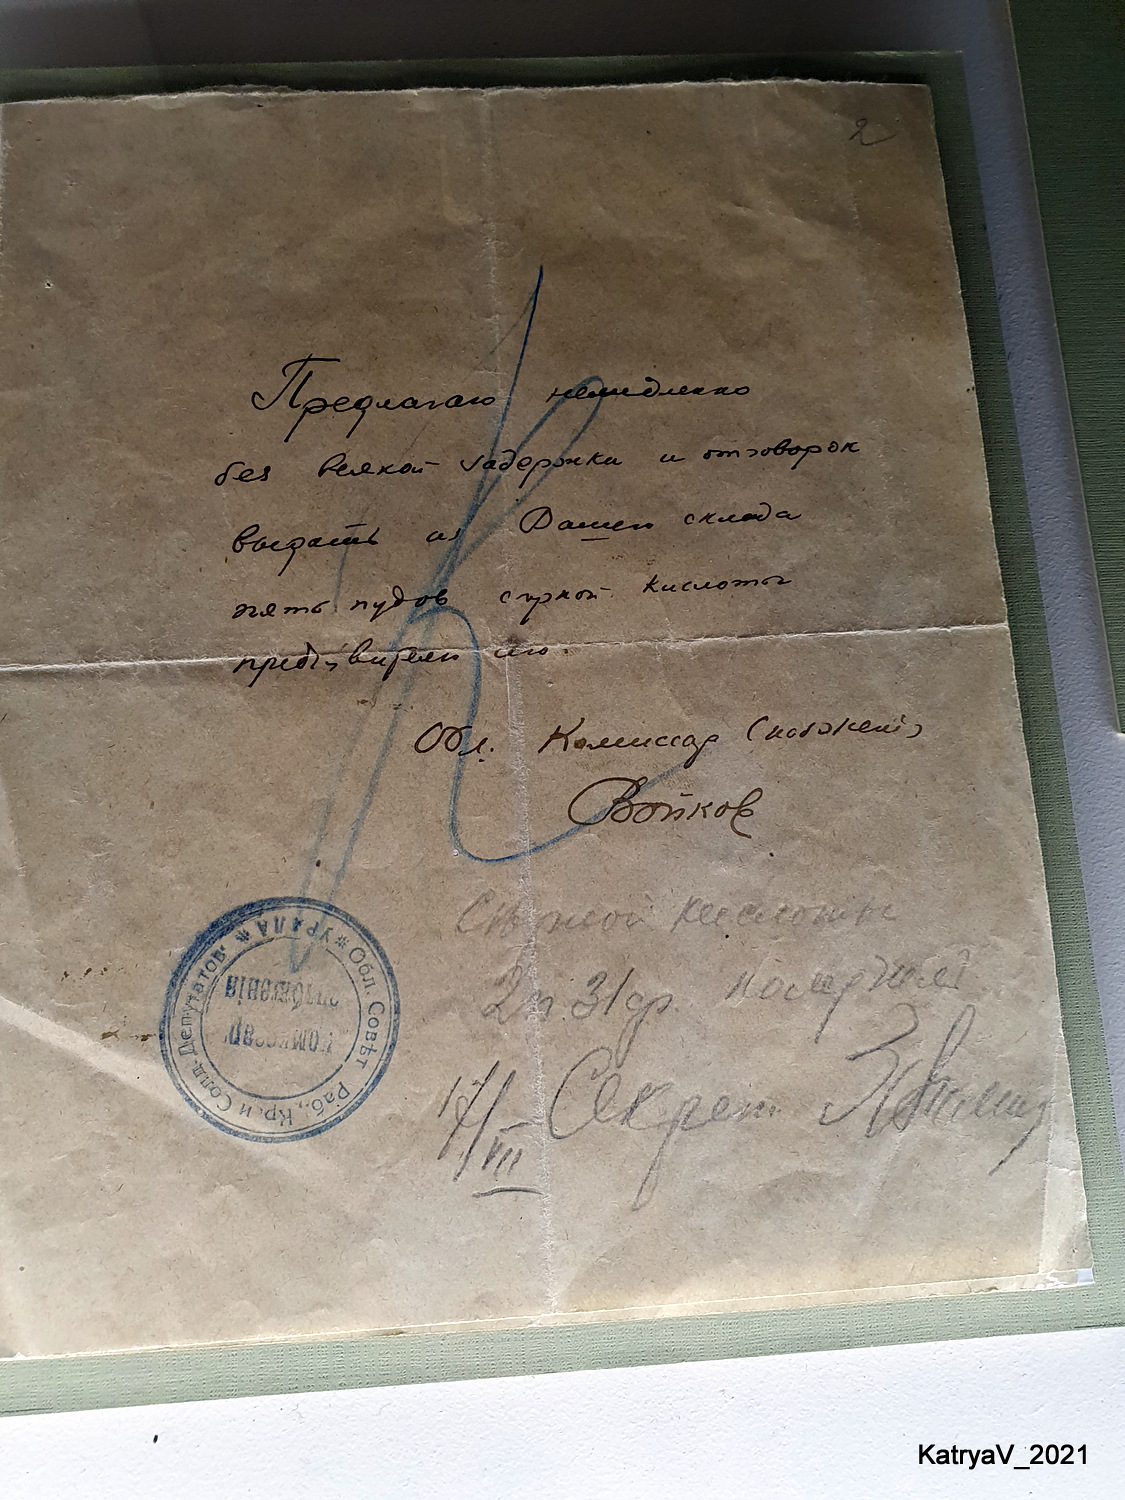 2
Предлагаю немедленно
без всякой задержки и отговорок
выдать из Вашего склада
пять пудов серной кислоты
предъявителю сего.
Обл. Комиссар Снабжения
Войков
Обл. Советъ Раб., Кр. и Солд. Депутатов. * УРАЛА *
Комиссаръ
снабженія
кислоты
2п. 31ф.
17/VII Секрет.
KatryaV_2021